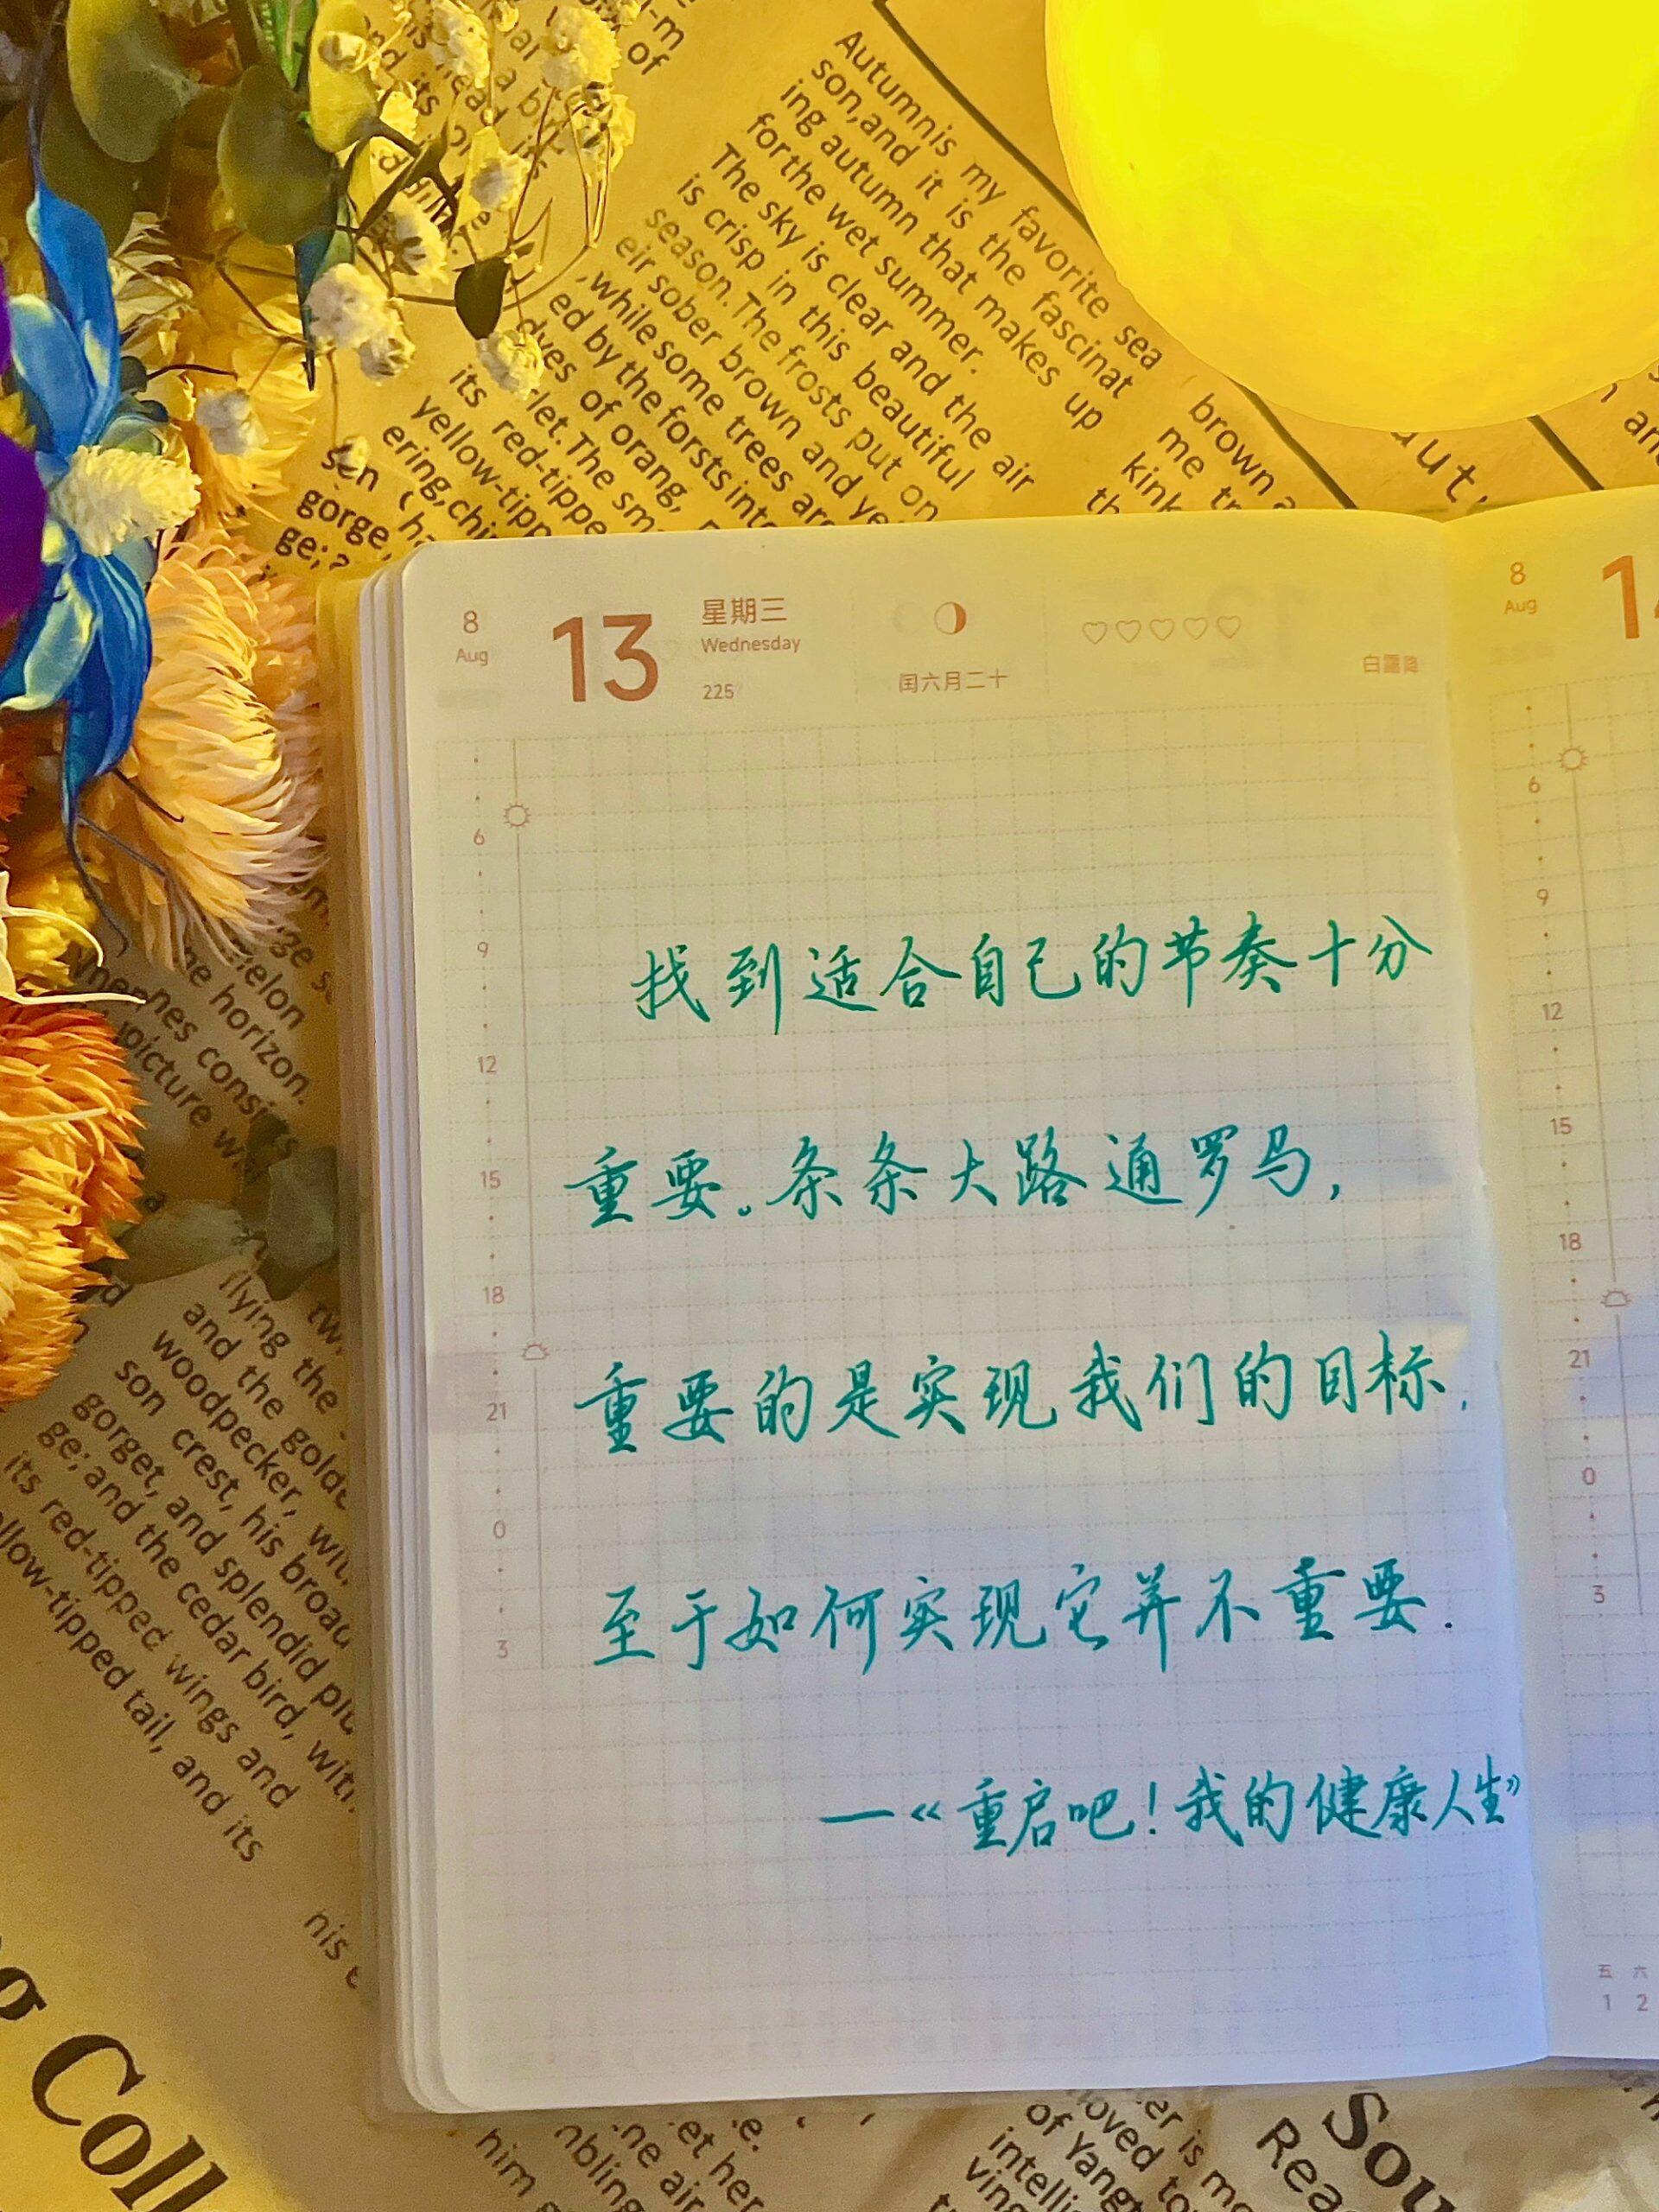 Autumnis my favorite sea
son,and it is the fascinat
ing autumn that makes up
forthe wet summer.
The sky is clear and the air
is crisp in this beautiful
season. The frosts put on
eir sober brown and ye
,while some trees are
ed by the forstsinto
dyes of orang,
rlet.The sm
its red-tippe
yellow-tipp
ering,chi
gorge,
ge;
brown a
me tr
kink
th
8
Aug
13
星期三
Wednesday
225
闰六月二十
白露降
6
9
12
15
18
21
0
3
找到适合自己的节奏十分
重要。条条大路通罗马,
重要的是实现我们的目标,
至于如何实现它并不重要.
—《重启吧!我的健康人生》
8
Aug
6
9
12
15
18
21
0
3
五 六
1 2
melon
he horizon.
nes consists
picture wi
flying the
and the golde
woodpecker, with
son crest, his broad
gorget, and splendid plu
ge; and the cedar bird, with
its red-tipped wings and
llow-tipped tail, and its
his
Coll
him
nbling
ne air
et her
e.
er is mo
loved to
of Yangt
intelli
ving
Sou
Rea